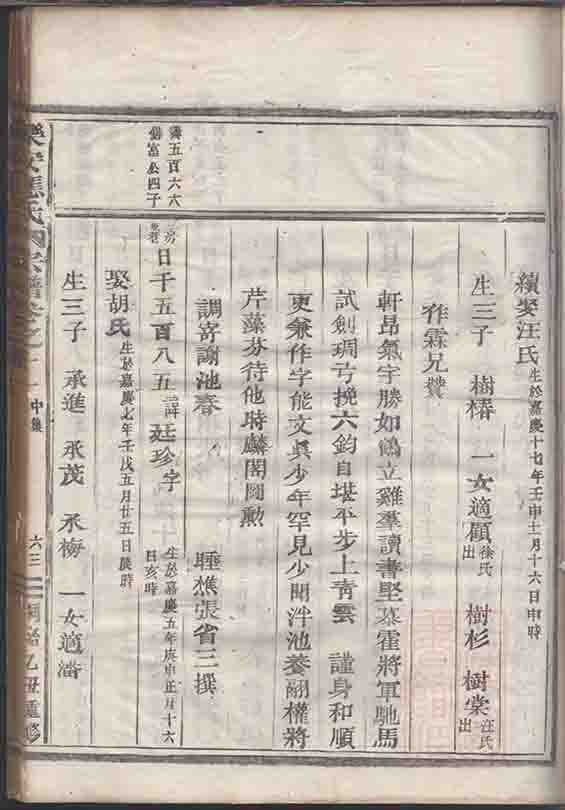 續娶汪氏 生於嘉慶十七年壬申十二月十六日申時
生三子 樹椿 一女適顧 徐氏出 樹杉 樹棠 汪氏出
作霖兄贊
軒昂氣宇勝如鶴立雞羣讀書堅慕霍將軍馳馬
試劍琱弓挽六鈞自堪平步上青雲 謹身和順
更兼作字能文眞少年罕見少聞泮池養翮權將
芹藻芬待他時麟閣圖勲
調寄謝池春 睡樵張省三撰
壽五百六六
錫富公四子
日千五百八五 諱廷珍字 生於嘉慶五年庚申正月十六日亥時
娶胡氏 生於嘉慶七年壬戌五月廿五日辰時
生三子 承進 承茂 承梅 一女適潘
樂安孫氏 宗譜卷之十一 中集 六三 同治乙丑重修